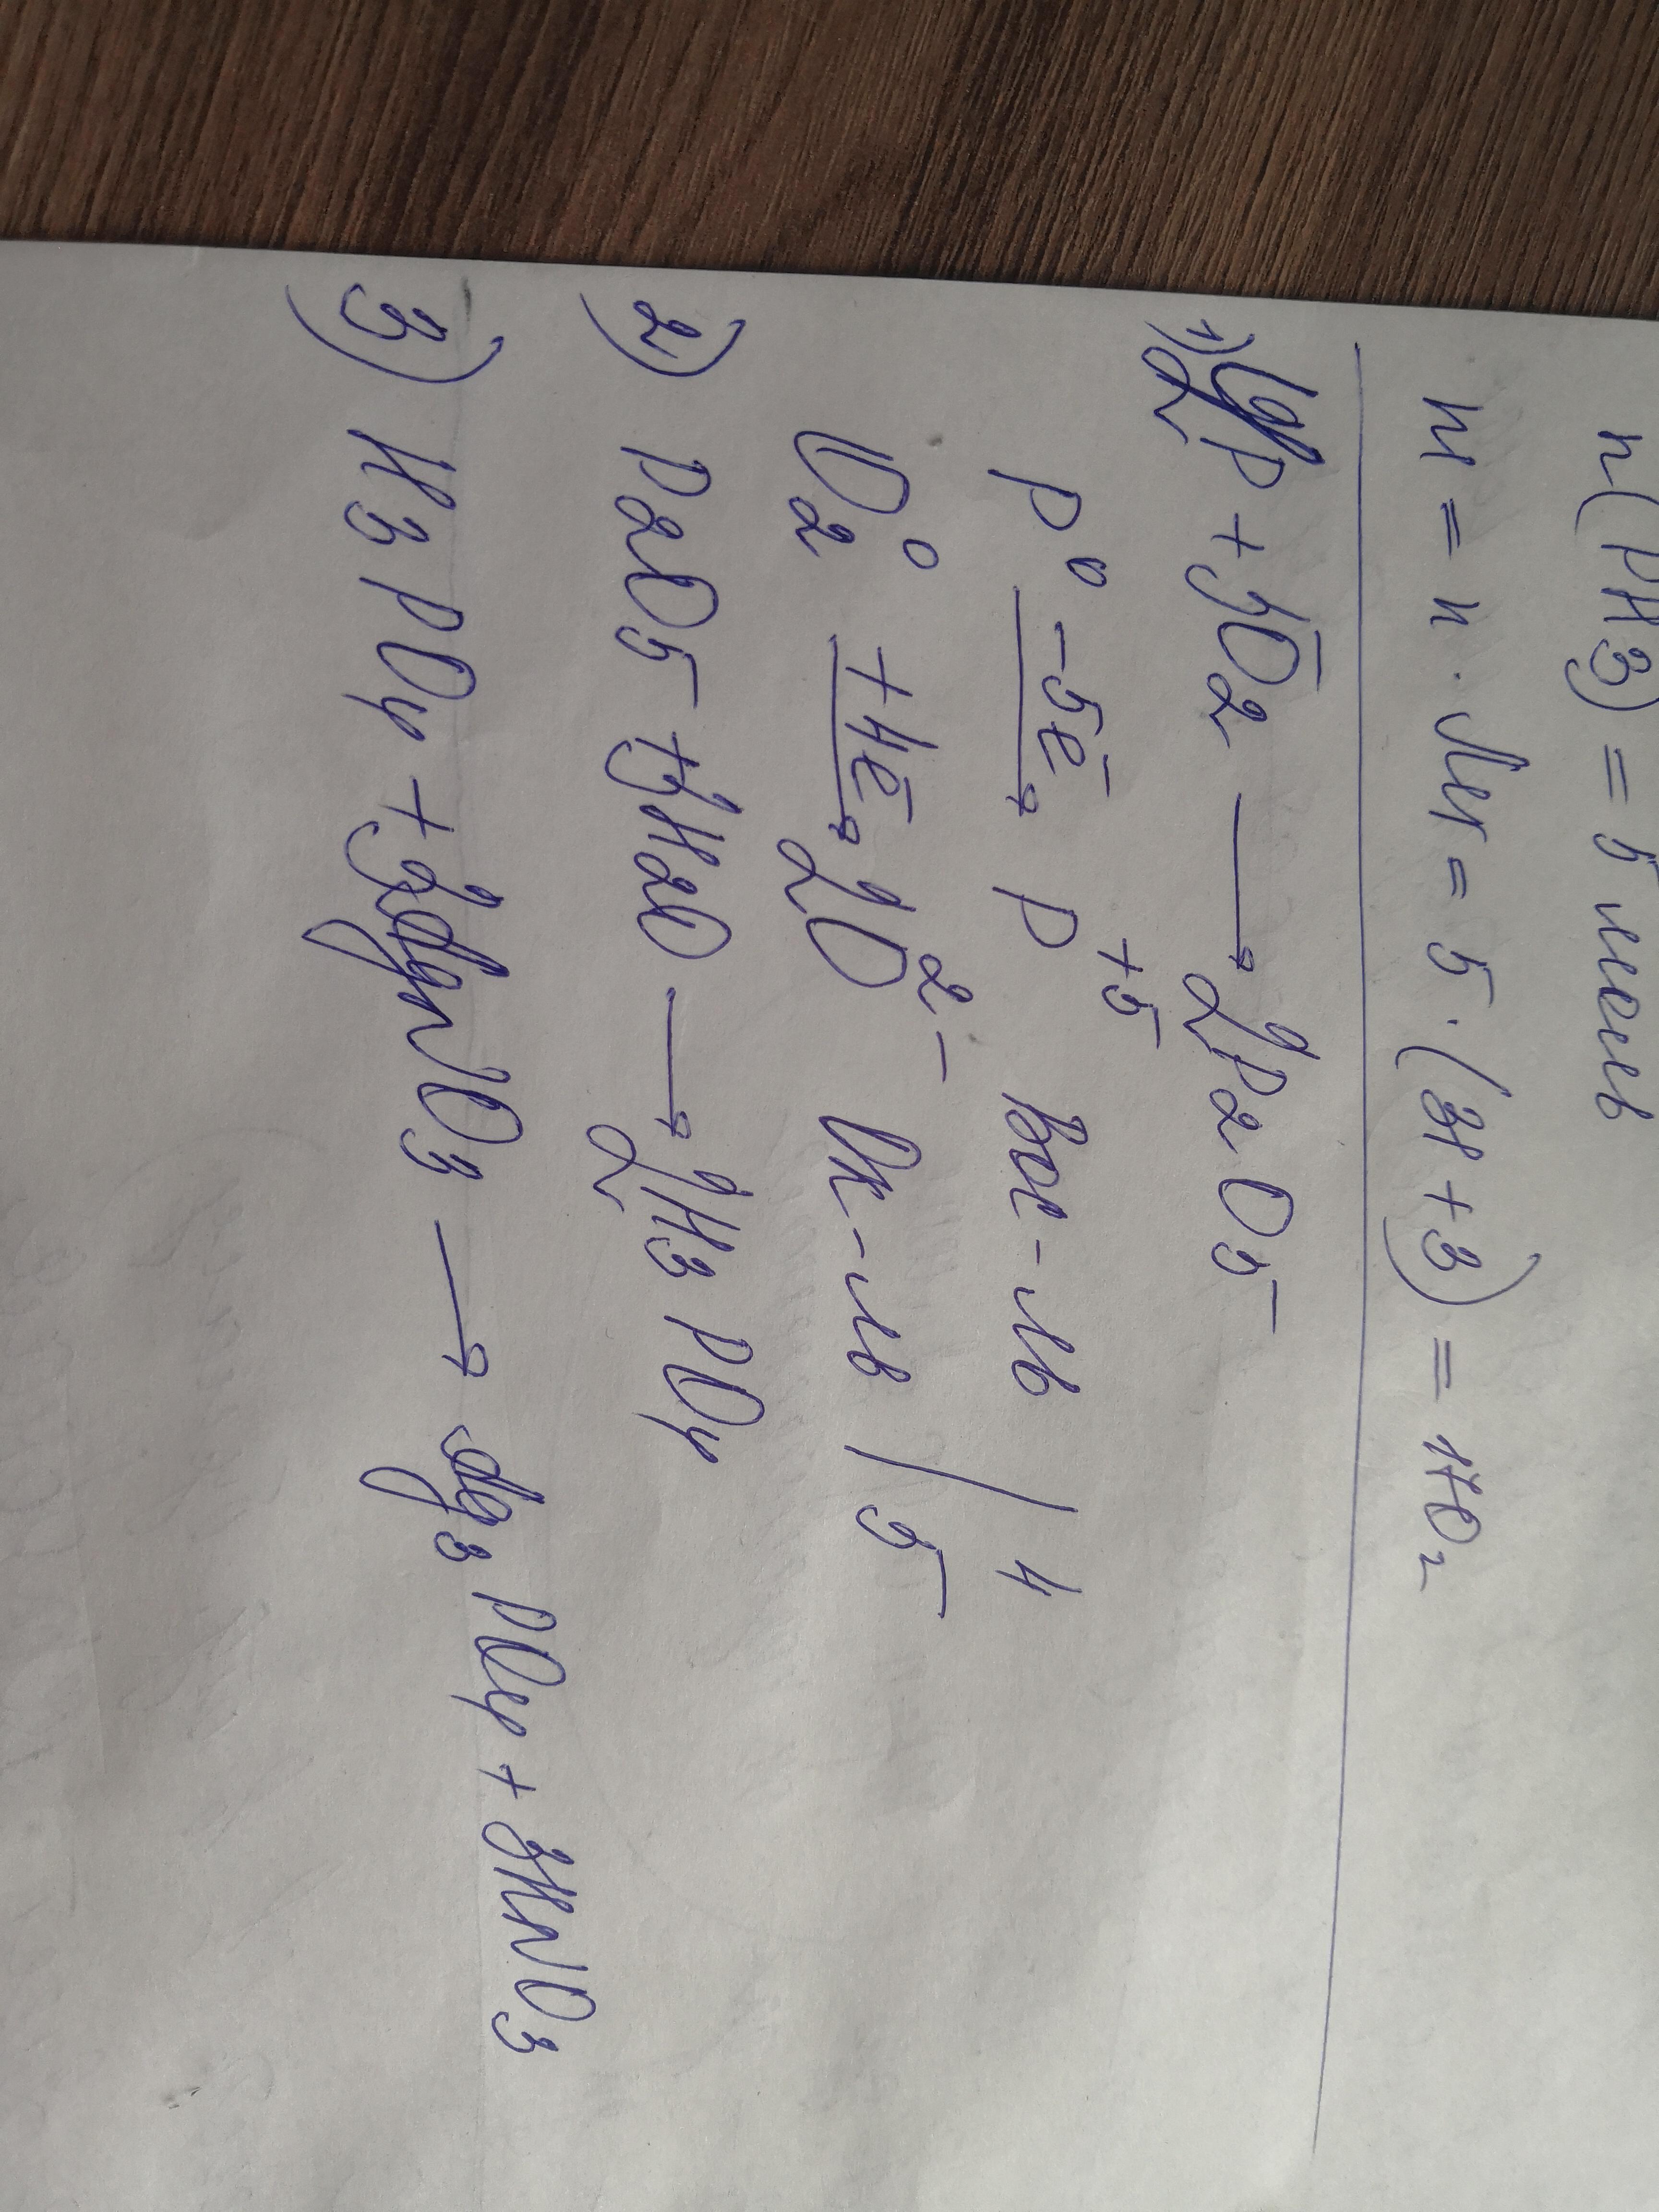 n(PH3) = 5 моль
m = n · Mr = 5 · (31+3) = 170г
1) 4P + 5O2 → 2P2O5
P⁰ -5ē → P⁺⁵ Вос-ль | 4
O2⁰ +4ē → 2O²⁻ Ок-ль | 5
2) P2O5 + 3H2O → 2H3PO4
3) H3PO4 + 3AgNO3 → Ag3PO4 + 3HNO3